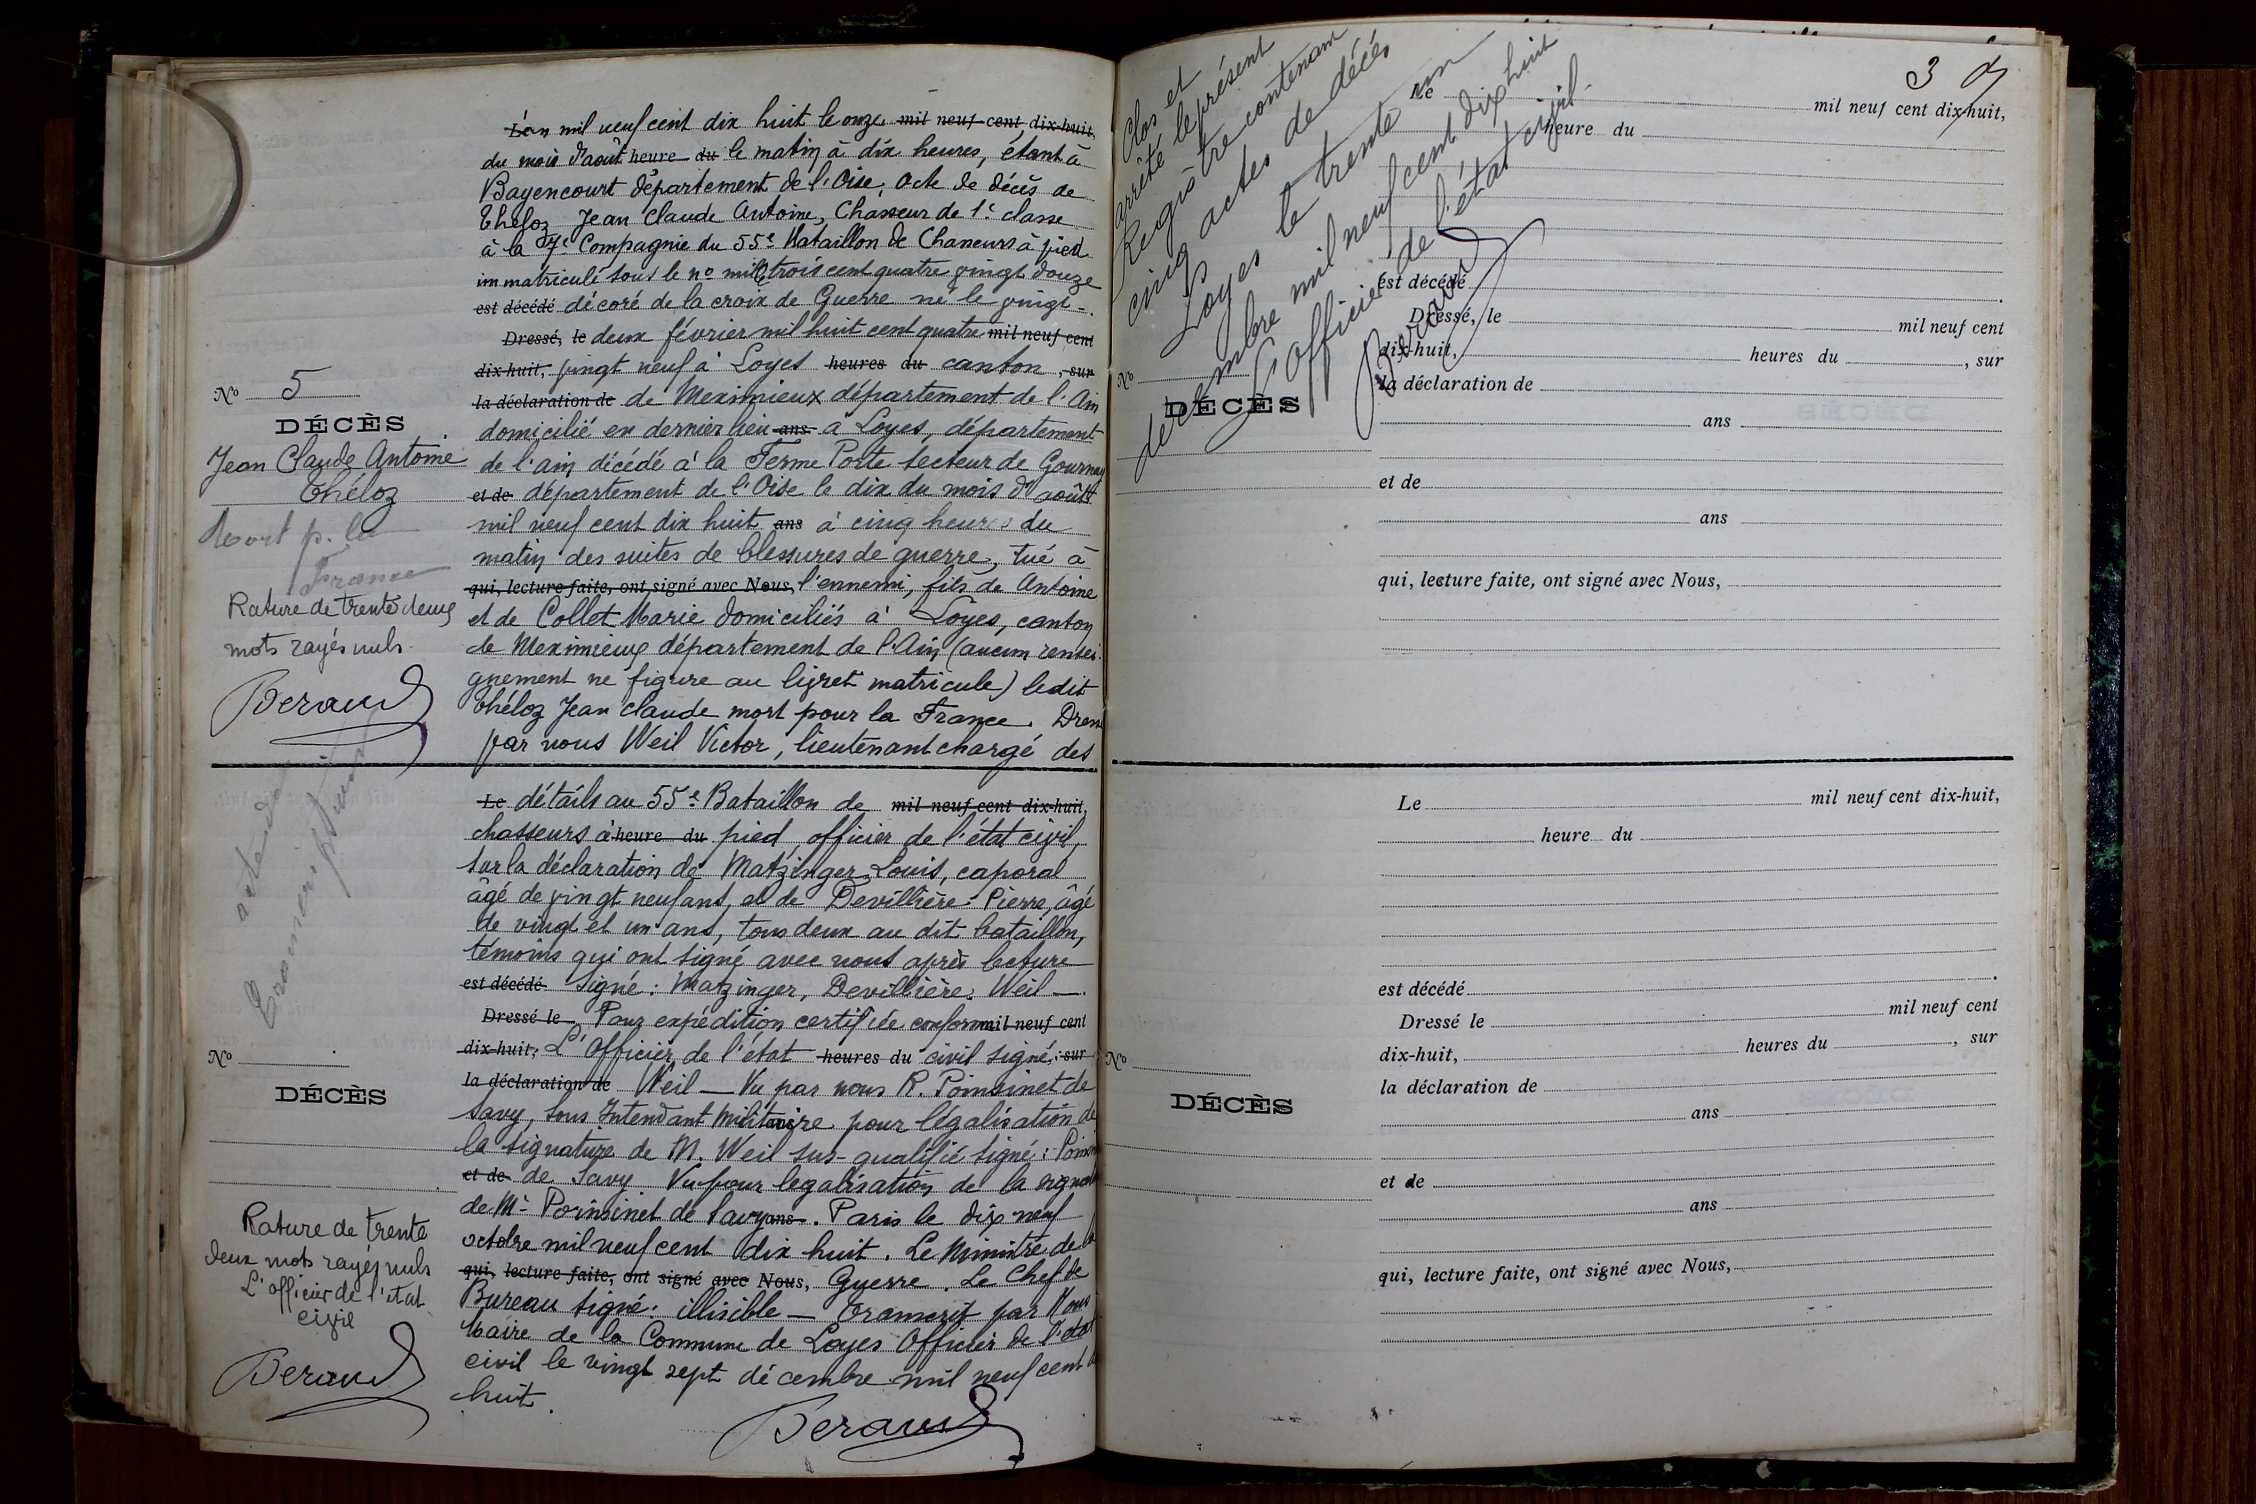 L'an mil neuf cent dix huit le onze mil neuf cent dix-huit,
du mois d'août heure du le matin à dix heures, étant à
Bayencourt département de l'Oise, acte de décès de
Théloz Jean Claude Antoine, Chasseur de 1e classe
à la 7e Compagnie du 55e Bataillon de Chasseurs à pied
immatriculé sous le no mille trois cent quatre vingt douze
est décédé décoré de la croix de Guerre né le vingt-.
Dressé, le deux février mil huit cent quatre mil neuf cent
dix-huit, vingt neuf à Loyes heures du canton, sur
la déclaration de de Meximieux département de l'Ain
domicilié en dernier lieu ans à Loyes, département
de l'ain décédé à la Ferme Porte secteur de Gournay
et de département de l'Oise le dix du mois d'août
mil neuf cent dix huit ans à cinq heures du
matin des suites de blessures de guerre, tué à
qui, lecture faite, ont signé avec Nous, l'ennemi, fils de Antoine
et de Collet Marie domiciliés à Loyes, canton
de Meximieux département de l'Ain (aucun rensei-
gnement ne figure au livret matricule) ledit
Théloz Jean Claude mort pour la France. Dressé
par nous Weil Victor, lieutenant chargé des
No 5
DÉCÈS
Jean Claude Antoine
Théloz
Mort p. la
France
Rature de trente deux
mots rayés nuls.
Beraud
acte de
Transcription
Le détails au 55e Bataillon de mil neuf cent dix-huit,
chasseurs à heure du pied, officier de l'état civil,
sur la déclaration de Matzinger Louis, caporal
âgé de vingt neuf ans, et de Devillière Pierre, âgé
de vingt et un ans, tous deux au dit bataillon,
témoins qui ont signé avec nous après lecture
est décédé signé: Matzinger, Devillière, Weil —.
Dressé le Pour expédition certifiée conforme mil neuf cent
dix-huit, L'Officier de l'état heures du civil signé, sur
la déclaration de Weil — Vu par nous R. Poinsinet de
Savy, Sous Intendant Militaire pour légalisation de
la signature de M. Weil sus-qualifié signé: Poinsinet
et de de Savy Vu pour legalisation de la signature
de Mr Poinsinet de Savy ans. Paris le dix neuf
octobre mil neuf cent dix huit. Le Ministre de la
qui, lecture faite, ont signé avec Nous, Guerre. Le Chef de
Bureau signé: illisible — Transcrit par Nous
Maire de la Commune de Loyes Officier de l'état
civil le vingt sept décembre mil neuf cent dix
huit.
Beraud
No
DÉCÈS
Rature de trente
deux mots rayés nuls
L'officier de l'état
civil
Beraud
Clos et
arrêté le présent
Registre contenant
cinq actes de décès
Loyes le trente un
décembre mil neuf cent dix huit
L'Officier de l'état civil.
Beraud
3
Le mil neuf cent dix-huit,
heure du
est décédé .
Dressé, le mil neuf cent
dix-huit, heures du , sur
la déclaration de
ans
et de
ans
qui, lecture faite, ont signé avec Nous,
No
DÉCÈS
Le mil neuf cent dix-huit,
heure du
est décédé .
Dressé le mil neuf cent
dix-huit, heures du , sur
la déclaration de
ans
et de
ans
qui, lecture faite, ont signé avec Nous,
No
DÉCÈS